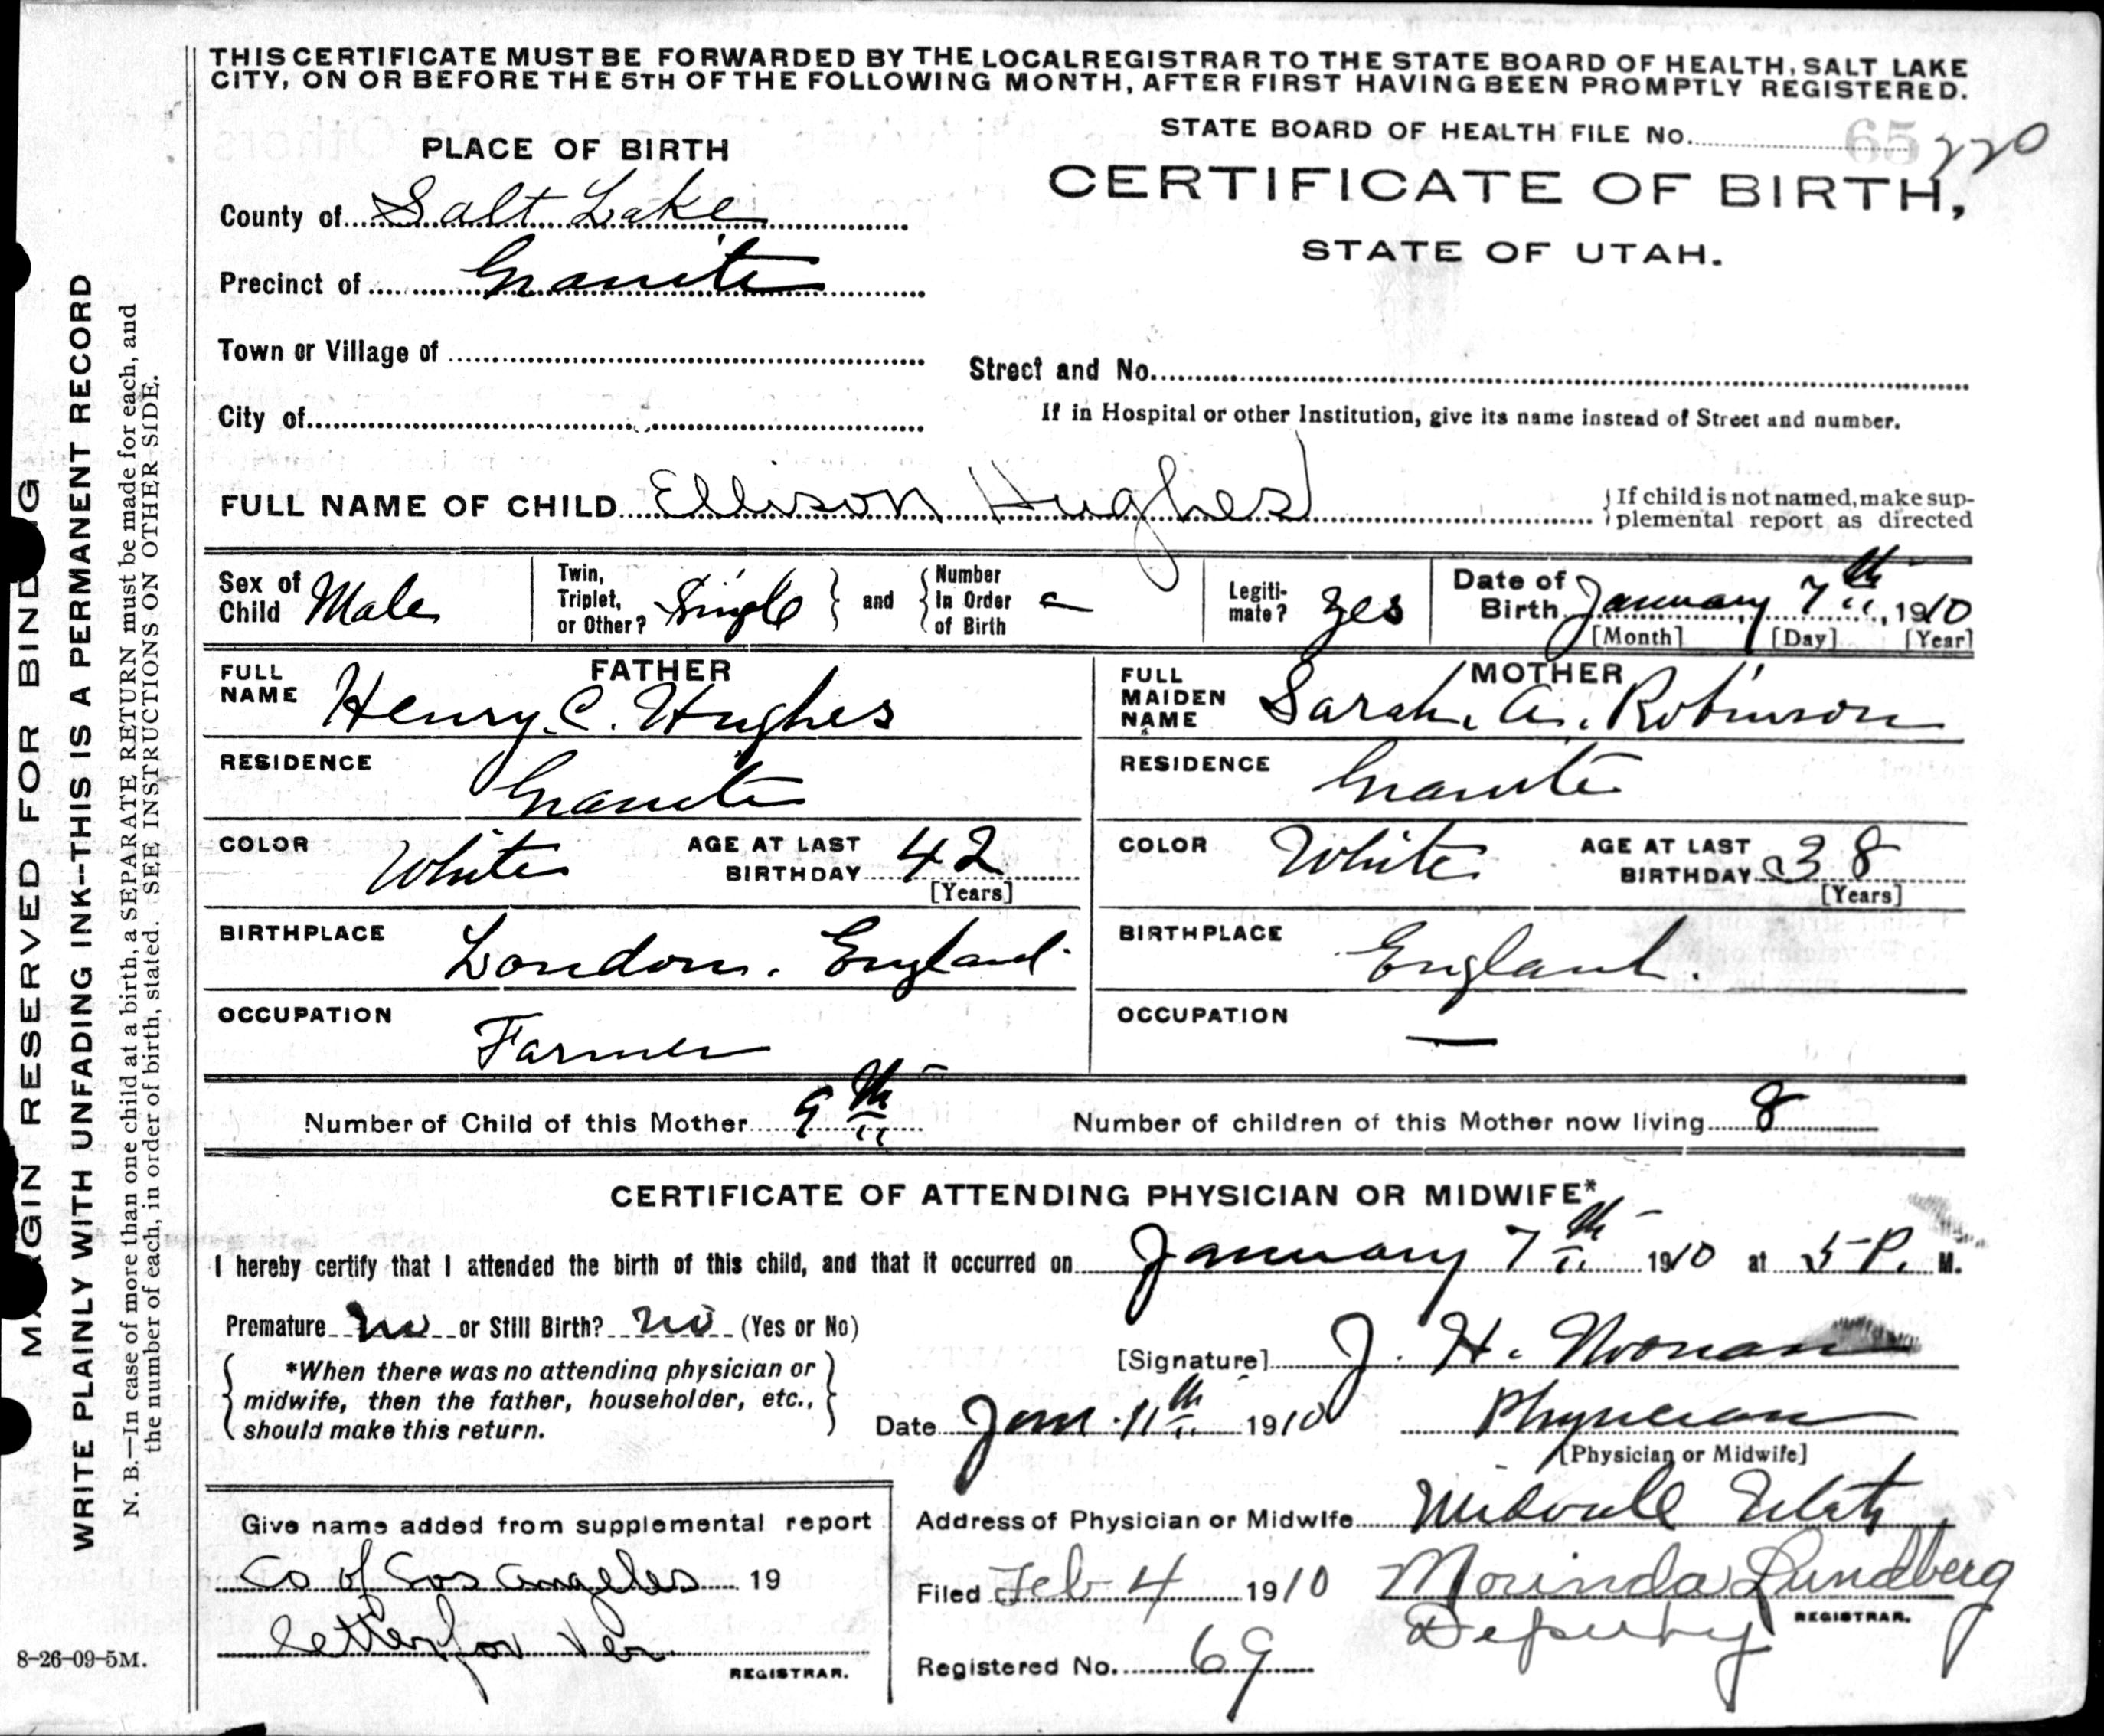 THIS CERTIFICATE MUST BE FORWARDED BY THE LOCAL REGISTRAR TO THE STATE BOARD OF HEALTH, SALT LAKE
CITY, ON OR BEFORE THE 5TH OF THE FOLLOWING MONTH, AFTER FIRST HAVING BEEN PROMPTLY REGISTERED.
STATE BOARD OF HEALTH FILE No. 65 220
PLACE OF BIRTH
CERTIFICATE OF BIRTH,
STATE OF UTAH.
County of Salt Lake
Precinct of Granite
Town or Village of
Street and No.
City of
If in Hospital or other Institution, give its name instead of Street and number.
FULL NAME OF CHILD Ellison Hughes
{If child is not named, make sup-
plemental report as directed
Sex of Child Male
Twin, Triplet, or Other? Single } and { Number In Order of Birth —
Legiti-mate? yes
Date of Birth January 7th, 1910
[Month] [Day] [Year]
FATHER
FULL NAME Henry C. Hughes
RESIDENCE Granite
COLOR White AGE AT LAST BIRTHDAY 42
[Years]
BIRTHPLACE London, England
OCCUPATION Farmer
MOTHER
FULL MAIDEN NAME Sarah A. Robinson
RESIDENCE Granite
COLOR White AGE AT LAST BIRTHDAY 38
[Years]
BIRTHPLACE England.
OCCUPATION —
Number of Child of this Mother 9th Number of children of this Mother now living 8
CERTIFICATE OF ATTENDING PHYSICIAN OR MIDWIFE*
I hereby certify that I attended the birth of this child, and that it occurred on January 7th 1910 at 5 P. M.
Premature no or Still Birth? no (Yes or No)
*When there was no attending physician or
midwife, then the father, householder, etc.,
should make this return.
[Signature] J. H. Noonan
Date Jan. 11th 1910 Physician
[Physician or Midwife]
Address of Physician or Midwife Midvale Utah
Give name added from supplemental report
Co of Los Angeles 19
letter for Ver
REGISTRAR.
Filed Feb 4 1910 Morinda Lundberg
REGISTRAR.
Deputy
Registered No. 69
8-26-09-5M.
MARGIN RESERVED FOR BINDING
WRITE PLAINLY WITH UNFADING INK--THIS IS A PERMANENT RECORD
N. B.—In case of more than one child at a birth, a SEPARATE RETURN must be made for each, and
the number of each, in order of birth, stated. SEE INSTRUCTIONS ON OTHER SIDE.